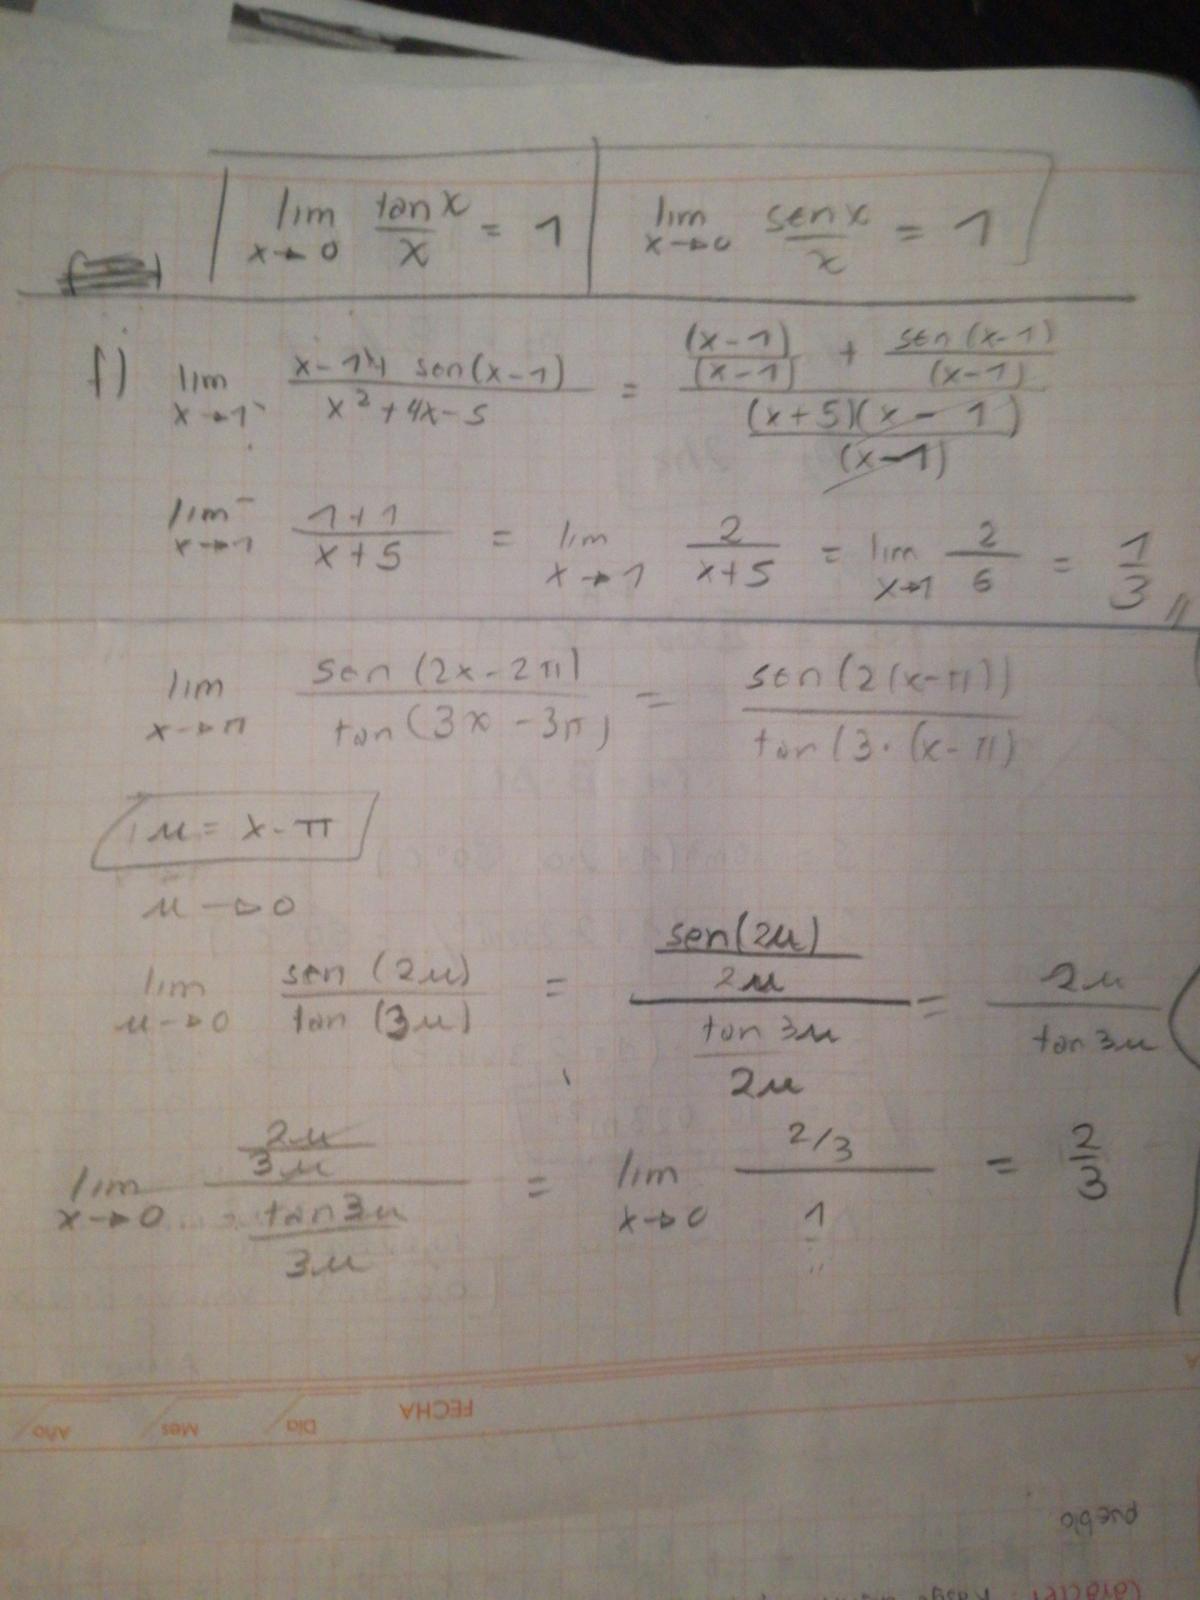 lim x→0 tan x / x = 1 | lim x→0 sen x / x = 1
f) lim x→1 (x-1+ sen(x-1)) / (x²+4x-5) = ((x-1)/(x-1) + sen(x-1)/(x-1)) / ((x+5)(x-1)/(x-1))
lim x→1 (1+1)/(x+5) = lim x→1 2/(x+5) = lim x→1 2/6 = 1/3 //
lim x→π sen(2x-2π) / tan(3x-3π) = sen(2(x-π)) / tan(3·(x-π)
μ = x-π
μ→0
lim μ→0 sen(2μ) / tan(3μ) = (sen(2μ)/2μ) / (tan 3μ/2μ) = 2μ / tan 3μ
lim x→0 (2μ/3μ) / (tan 3μ/3μ) = lim x→0 (2/3) / 1 = 2/3
FECHA Día Mes Año
pueblo